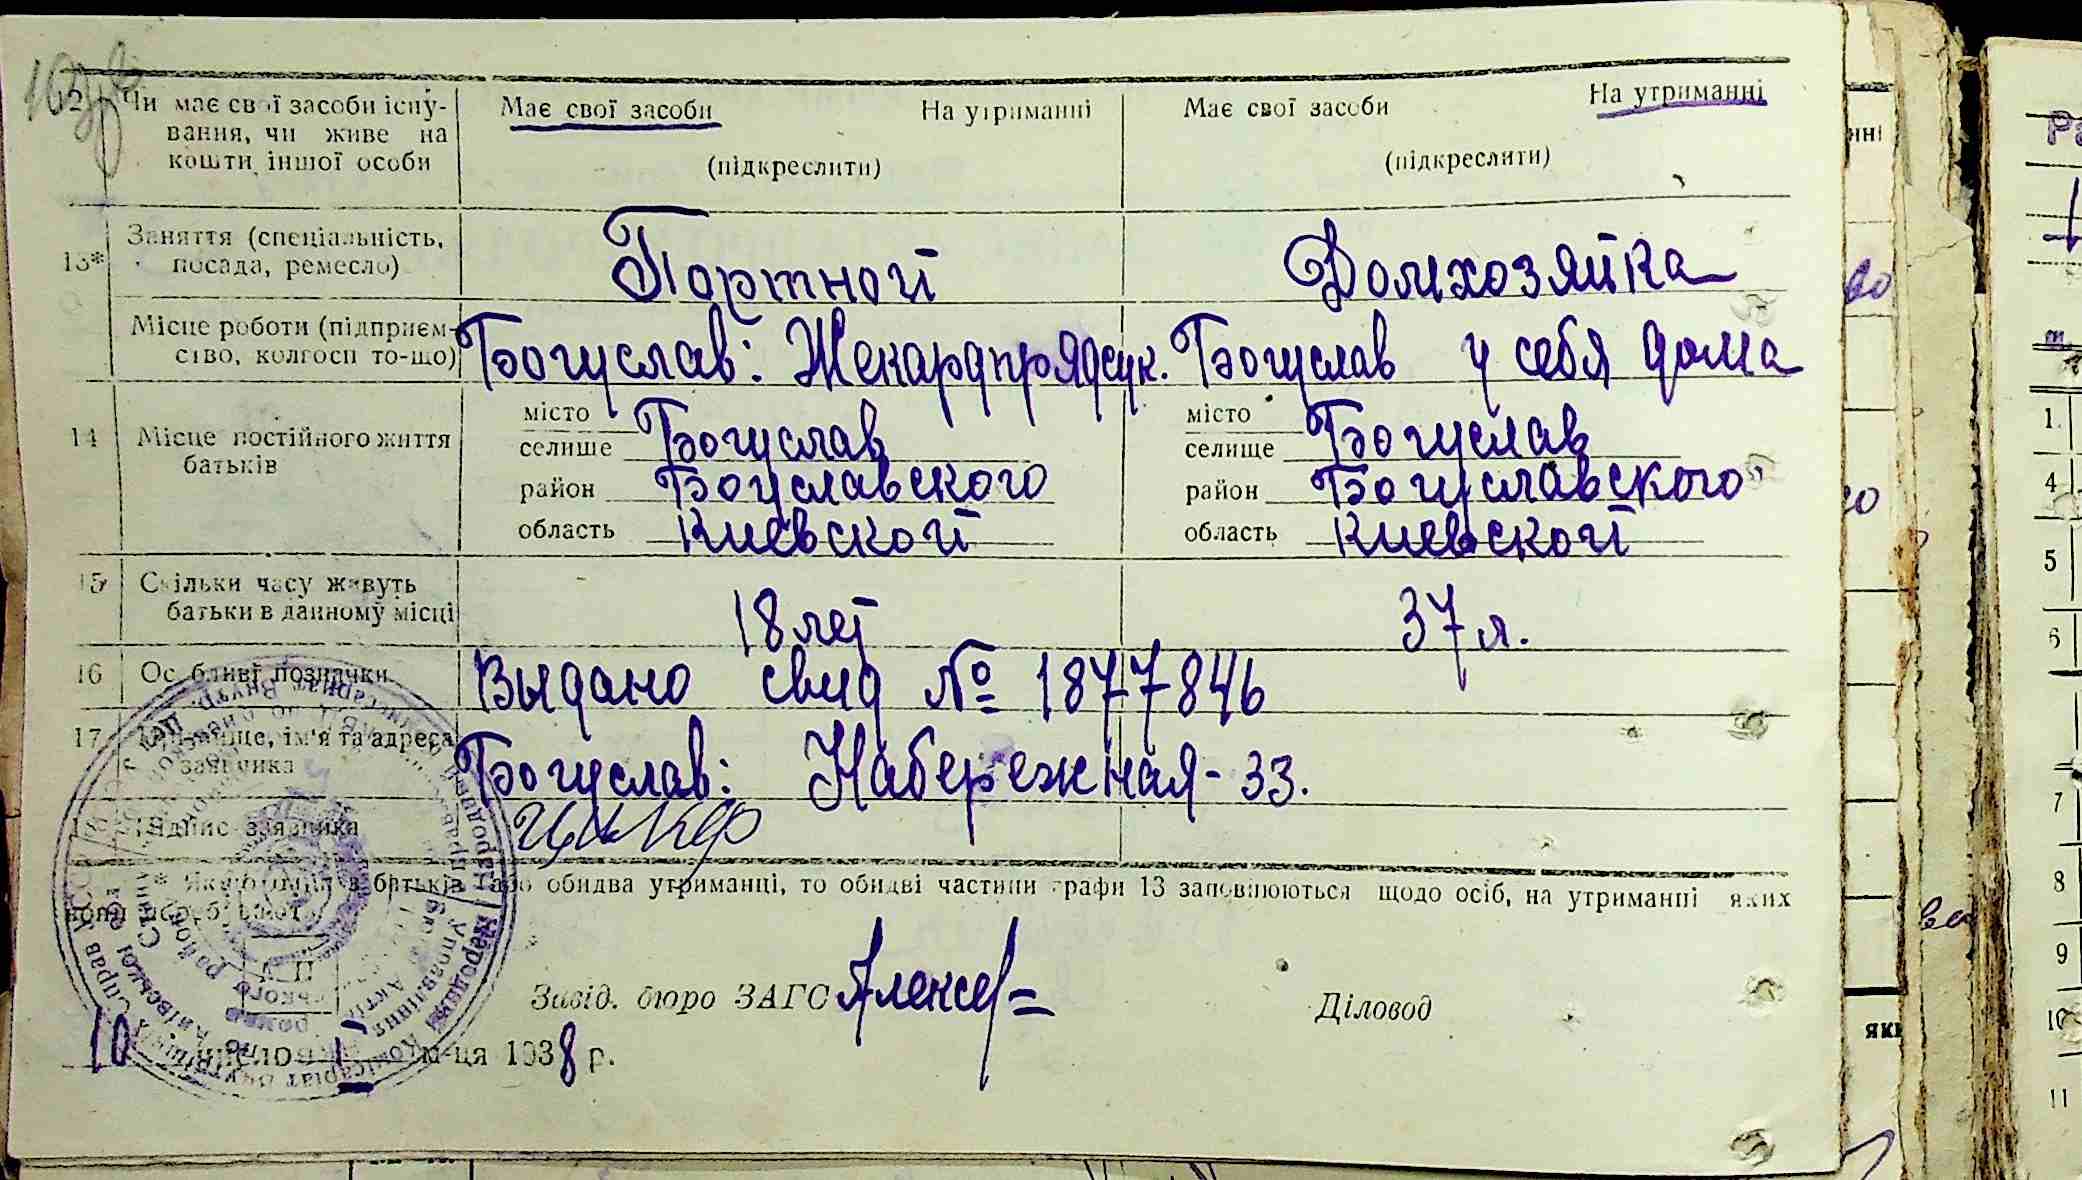 12 Чи має свої засоби існу-
вання, чи живе на
кошти іншої особи
Має свої засоби На утриманні
(підкреслити)
Має свої засоби На утриманні
(підкреслити)
13* Заняття (спеціальність,
посада, ремесло)
Портной
Домхозяйка
Місце роботи (підприєм-
ство, колгосп то-що)
Богуслав:
Богуслав у себя дома
14 Місце постійного життя
батьків
місто
селище Богуслав
район Богуславского
область Киевской
місто
селище Богуслав
район Богуславского
область Киевской
15 Скільки часу живуть
батьки в данному місці
18 лет
37 л.
16 Особливі позначки
Выдано свид № 1877846
17 Прізвище, ім'я та адреса
заявника
Богуслав: Набережная - 33.
Підпис заявника
Цикер
* Якщо один з батьків або обидва утриманці, то обидві частини графи 13 заповнюються щодо осіб, на утриманні яких
вони перебувають.
Завід. бюро ЗАГС
Діловод
10 числа 1 м-ця 1938 р.